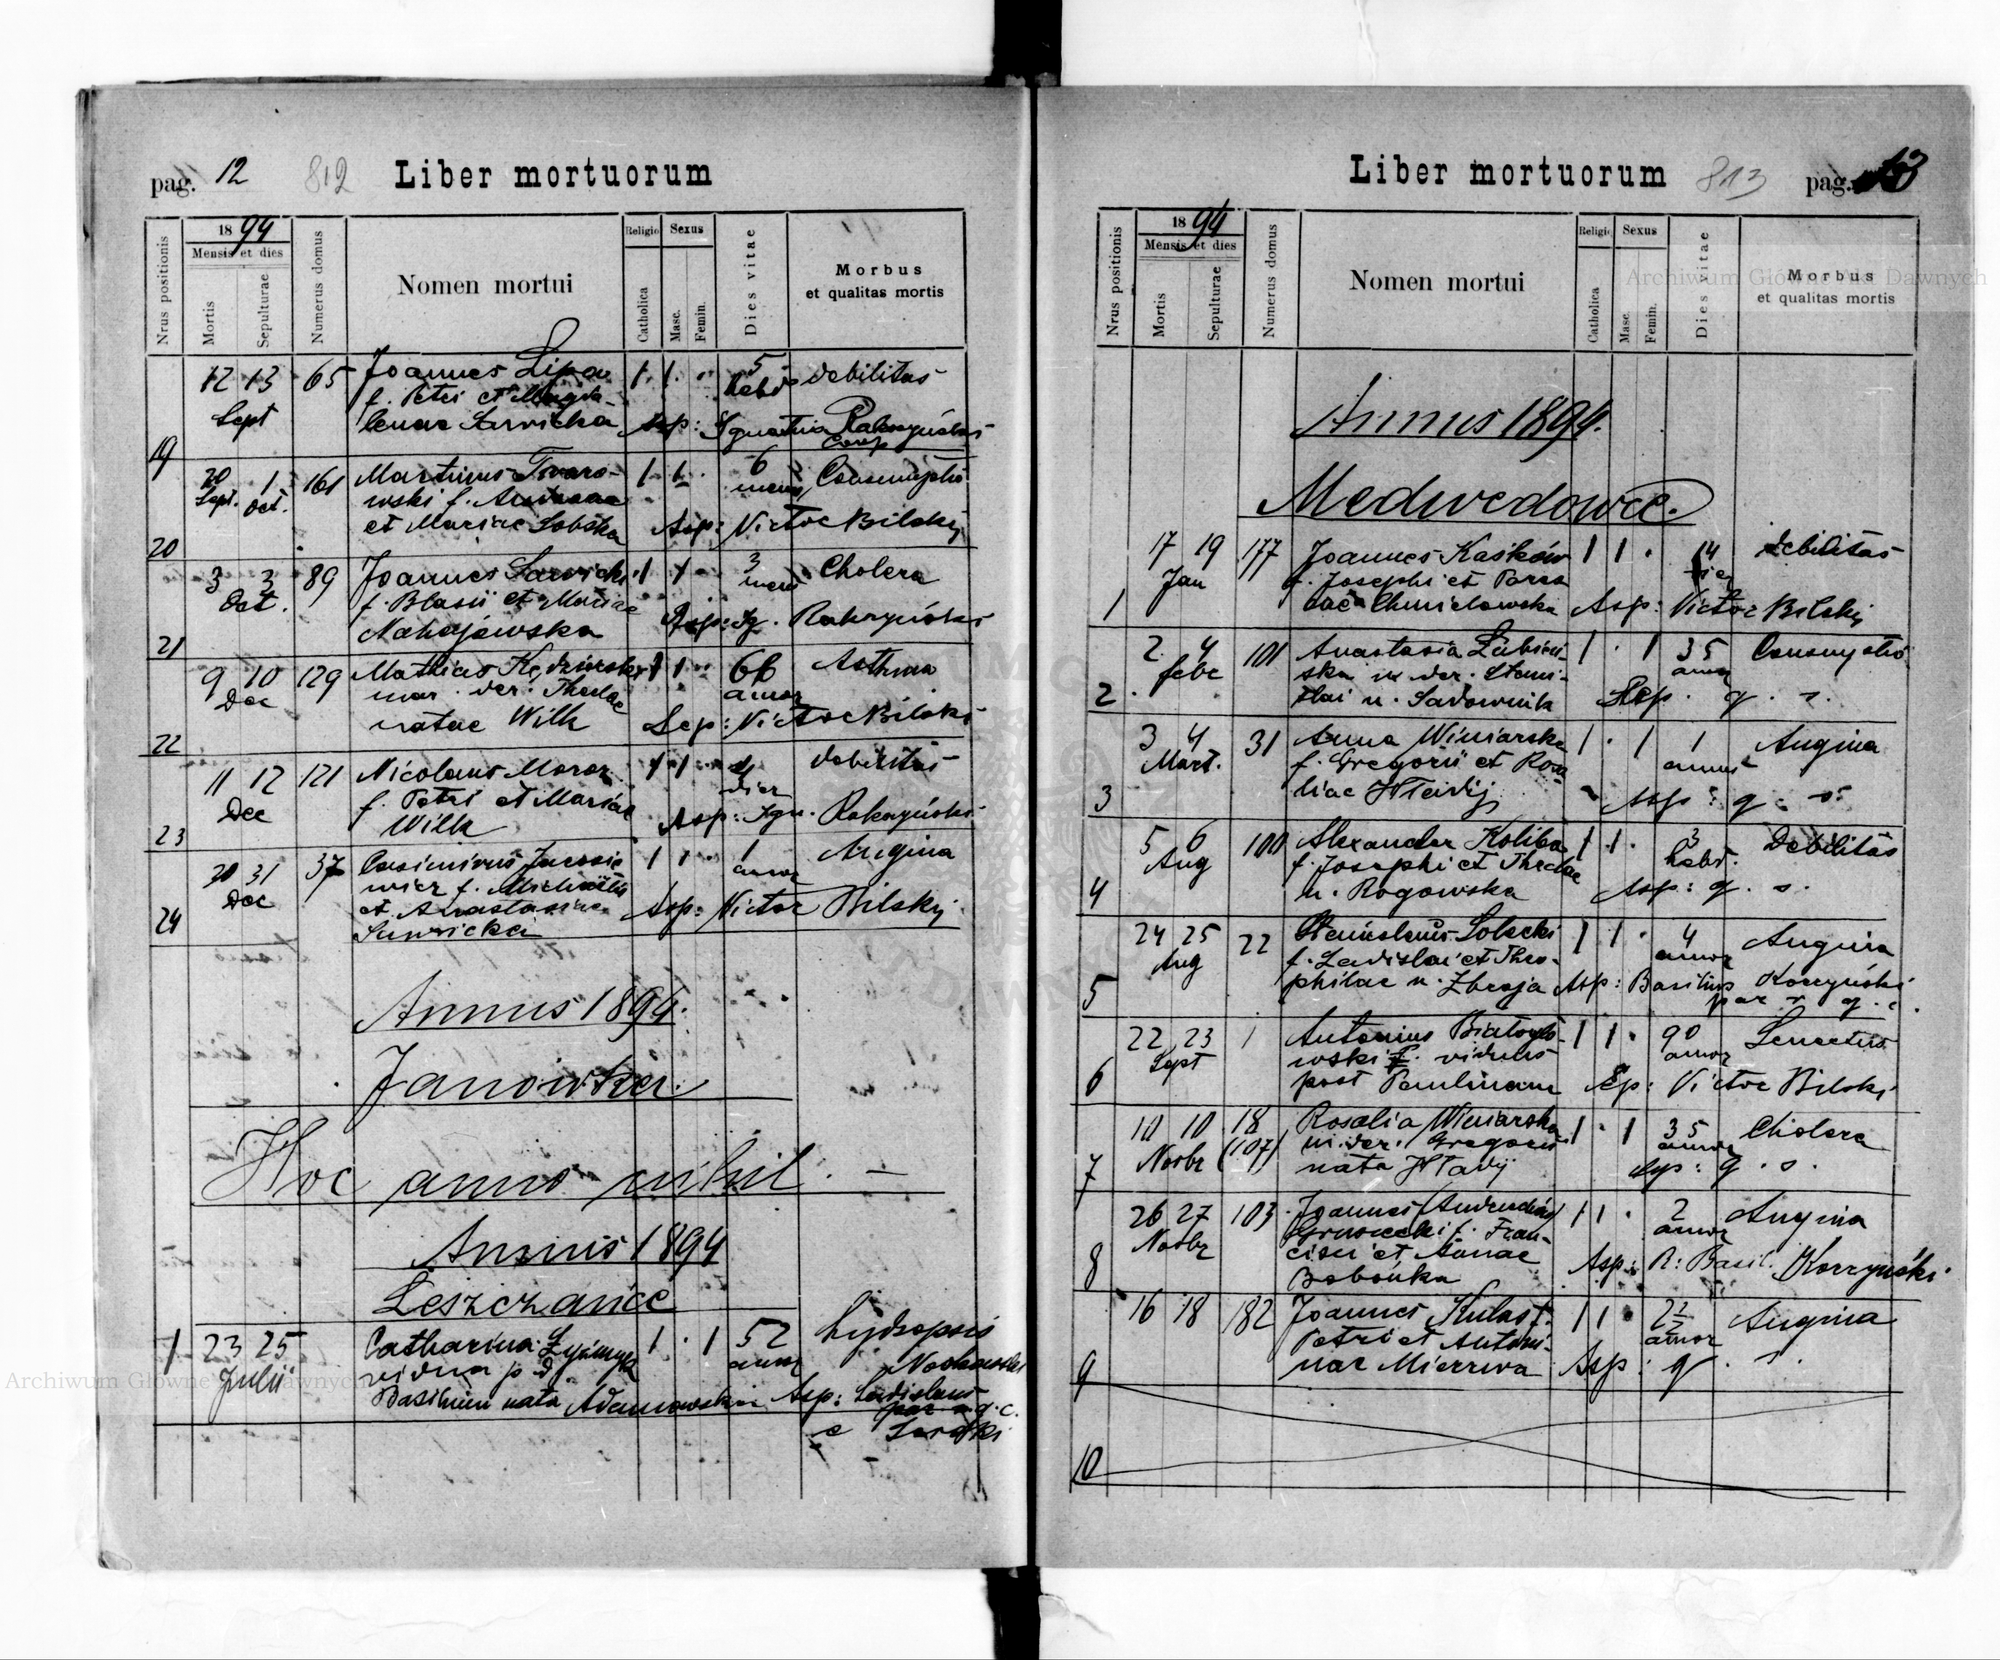 pag. 12
812
Liber mortuorum
Nrus positionis
1894
Mensis et dies
Mortis
Sepulturae
Numerus domus
Nomen mortui
Religio
Catholica
Sexus
Masc.
Femin.
Dies vitae
Morbus
et qualitas mortis
19
12 13
Sept
65
Joannes Lipa
f. Petri et Magda-
lenae
1 . 1 . .
5
hebd
debilitas
Asp: Ignatius Rakczyński
Coop
20
20 1
Sept. Oct.
161
Martinus Twaro-
wski f. Andreae
et Mariae Sobska
1 . 1 .
6
mens
Consumptio
Asp: Victor Bilskij
21
3 3
Oct.
89
Joannes Sawicki
f. Blasii et Mariae
Nahajewska
1 1 .
3
mens
Cholera
Asp: Ig. Rakczyński
22
9 10
Dec
129
Mathias Kędzierski
mar. der. Theclae
natae Wilk
1 1 . .
66
annor
Asthma
Sep: Victor Bilski
23
11 12
Dec
121
Nicolaus Moroz
f. Petri et Mariae
Wilk
1 1 . .
dier
debilitas
Asp: Ign. Rakczyński
24
30 31
Dec
37
Casimirus Jacosie
wicz f. Michaelis
et Anastasiae
Sawicka
1 1 .
1
annor
Angina
Asp: Victor Bilskij
Annus 1894.
Janówka.
Hoc anno nihil. —
Annus 1894
Leszczańce
1
23 25
Julii
Catharina
vidua p. d.
Basilium nata Adamowska
1 . 1
52
annor
hydropsis
Asp: Ladislaus
par. g. c.
Liber mortuorum
813
pag. 13
Nrus positionis
1894
Mensis et dies
Mortis
Sepulturae
Numerus domus
Nomen mortui
Religio
Catholica
Sexus
Masc.
Femin.
Dies vitae
Morbus
et qualitas mortis
Annus 1894.
Medwedowce.
1
17 19
Jan
177
Joannes Kasków
f. Josephi et Paras
cae Chmielowska
1 1 .
14
dier
debilitas
Asp: Victor Bilskij
2
2 4
febr
101
Anastasia Lubień-
ska ux der. Stani-
slai n. Sadownik
1 . 1
35
annor
Consumptio
Asp. q. s.
3
3 4
Mart.
31
Anna Winiarska
f. Gregorii et Rosa-
liae Hławij
1 . 1
1
annus
Angina
Asp: q. s.
4
5 6
Aug
100
Alexander Koliba
f. Josephi et Theclae
n. Rogowska
1 1 .
3
hebd.
Debilitas
Asp: q. s.
5
24 25
Aug
22
Stanislaus Solecki
f. Ladislai et Theo-
philae n. Zbroja
1 1 .
4
annor
Angina
Asp: Basilius Korzyński
par r. g. c.
6
22 23
Sept
1
Antonius Białogło-
wski viduus
post Paulinam
1 1 .
90
annor
Senectus
Sep: Victor Bilski
7
10 10
Novbr
18
(107)
Rosalia Winiarska
ux. der. Gregorii
nata Hławij
1 . 1
35
annor
Cholera
Asp: q. s.
8
26 27
Novbr
103
Joannes (Andreas)
Gruszecki f. Fran-
cisci et Annae
Bobońka
1 1 .
2
annor
Angina
Asp: R: Basil. Korzyński.
9
16 18
182
Joannes Kulas f.
Petri et Antoni-
nae Mierzwa
1 1 .
2 1/2
annor
Angina
Asp: q. s.
10
Archiwum Główne Akt Dawnych
Archiwum Główne Akt Dawnych